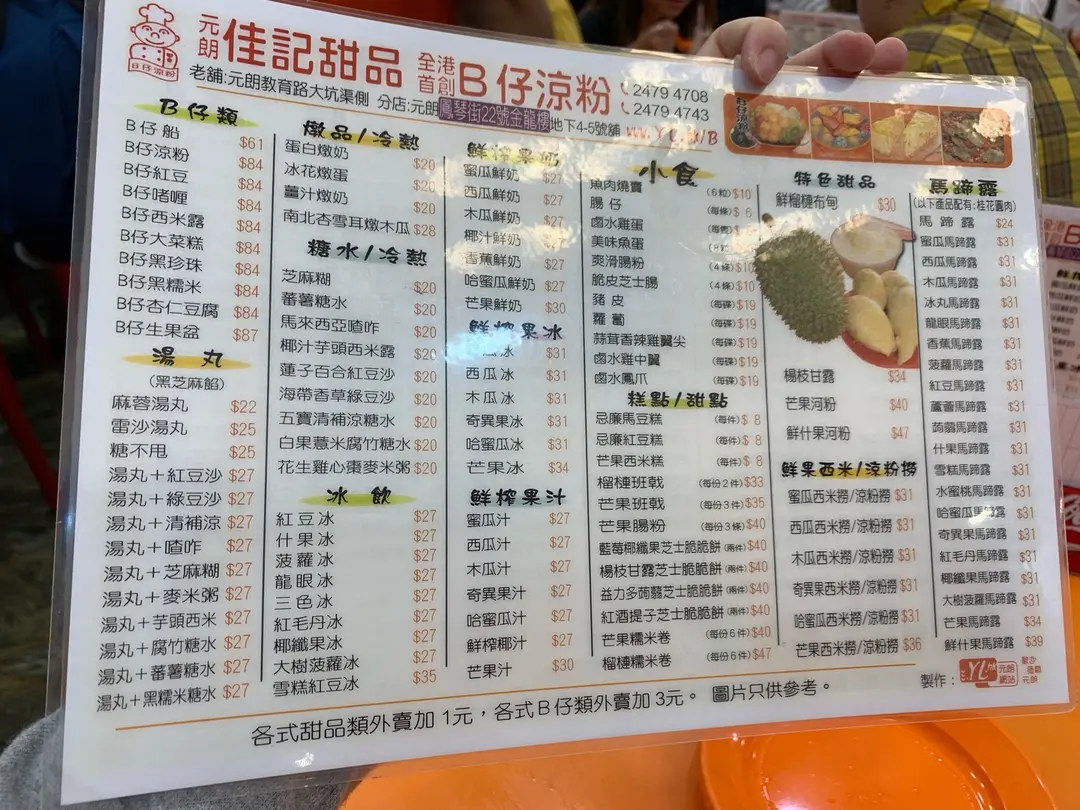 元朗 佳記甜品 全港首創 B仔涼粉 2479 4708
2479 4743
B仔涼粉
老舖:元朗教育路大坑渠側 分店:元朗鳳琴街22號金龍樓地下4-5號舖
B仔類
B仔船 $61
B仔涼粉 $84
B仔紅豆 $84
B仔啫喱 $84
B仔西米露 $84
B仔大菜糕 $84
B仔黑珍珠 $84
B仔黑糯米 $84
B仔杏仁豆腐 $84
B仔生果盆 $87
湯丸
(黑芝麻餡)
麻蓉湯丸 $22
雷沙湯丸 $25
糖不甩 $25
湯丸+紅豆沙 $27
湯丸+綠豆沙 $27
湯丸+清補涼 $27
湯丸+喳咋 $27
湯丸+芝麻糊 $27
湯丸+麥米粥 $27
湯丸+芋頭西米 $27
湯丸+腐竹糖水 $27
湯丸+蕃薯糖水 $27
湯丸+黑糯米糖水 $27
燉品/冷熱
蛋白燉奶 $20
冰花燉蛋 $20
薑汁燉奶 $20
南北杏雪耳燉木瓜 $28
糖水/冷熱
芝麻糊 $20
蕃薯糖水 $20
馬來西亞喳咋 $20
椰汁芋頭西米露 $20
蓮子百合紅豆沙 $20
海帶香草綠豆沙 $20
五寶清補涼糖水 $20
白果薏米腐竹糖水 $20
花生雞心棗麥米粥 $20
冰飲
紅豆冰 $27
什果冰 $27
菠蘿冰 $27
龍眼冰 $27
三色冰 $27
紅毛丹冰 $27
椰纖果冰 $27
大樹菠蘿冰 $27
雪糕紅豆冰 $35
鮮榨果奶
蜜瓜鮮奶 $27
西瓜鮮奶 $27
木瓜鮮奶 $27
椰汁鮮奶 $27
香蕉鮮奶 $27
哈蜜瓜鮮奶 $27
芒果鮮奶 $30
鮮榨果冰
瓜冰 $31
西瓜冰 $31
木瓜冰 $31
奇異果冰 $31
哈蜜瓜冰 $31
芒果冰 $34
鮮榨果汁
蜜瓜汁 $27
西瓜汁 $27
木瓜汁 $27
奇異果汁 $27
哈蜜瓜汁 $27
鮮榨椰汁 $27
芒果汁 $30
小食
魚肉燒賣 (6粒) $10
腸仔 (每條) $6
鹵水雞蛋
美味魚蛋
爽滑腸粉 (4條) $10
脆皮芝士腸 (4條) $10
豬皮 (每碟) $19
蘿蔔 (每碟) $19
蒜茸香辣雞翼尖 (每碟) $19
鹵水雞中翼 (每碟) $19
鹵水鳳爪 (每碟) $19
糕點/甜點
忌廉馬豆糕 (每件) $8
忌廉紅豆糕 (每件) $8
芒果西米糕 (每件) $8
榴槤班戟 (每份2件) $33
芒果班戟 (每份3件) $35
芒果腸粉 (每份3條) $40
藍莓椰纖果芝士脆脆餅 (兩件) $40
楊枝甘露芝士脆脆餅 (兩件) $40
益力多蒟蒻芝士脆脆餅 (兩件) $40
紅酒提子芝士脆脆餅 (兩件) $40
芒果糯米卷 (每份6件) $40
榴槤糯米卷 (每份6件) $47
特色甜品
鮮榴槤布甸 $30
楊枝甘露 $34
芒果河粉 $40
鮮什果河粉 $47
鮮果西米/涼粉撈
蜜瓜西米撈/涼粉撈 $31
西瓜西米撈/涼粉撈 $31
木瓜西米撈/涼粉撈 $31
奇異果西米撈/涼粉撈 $31
哈蜜瓜西米撈/涼粉撈 $31
芒果西米撈/涼粉撈 $36
馬蹄露
(以下產品配有:桂花圓肉)
馬蹄露 $24
蜜瓜馬蹄露 $31
西瓜馬蹄露 $31
木瓜馬蹄露 $31
冰丸馬蹄露 $31
龍眼馬蹄露 $31
香蕉馬蹄露 $31
菠蘿馬蹄露 $31
紅豆馬蹄露 $31
蘆薈馬蹄露 $31
蒟蒻馬蹄露 $31
什果馬蹄露 $31
雪糕馬蹄露 $31
水蜜桃馬蹄露 $31
哈蜜瓜馬蹄露 $31
奇異果馬蹄露 $31
紅毛丹馬蹄露 $31
椰纖果馬蹄露 $31
大樹菠蘿馬蹄露 $31
芒果馬蹄露 $34
鮮什果馬蹄露 $39
製作: YL.hk 元朗網站
各式甜品類外賣加 1元,各式B仔類外賣加 3元。 圖片只供參考。